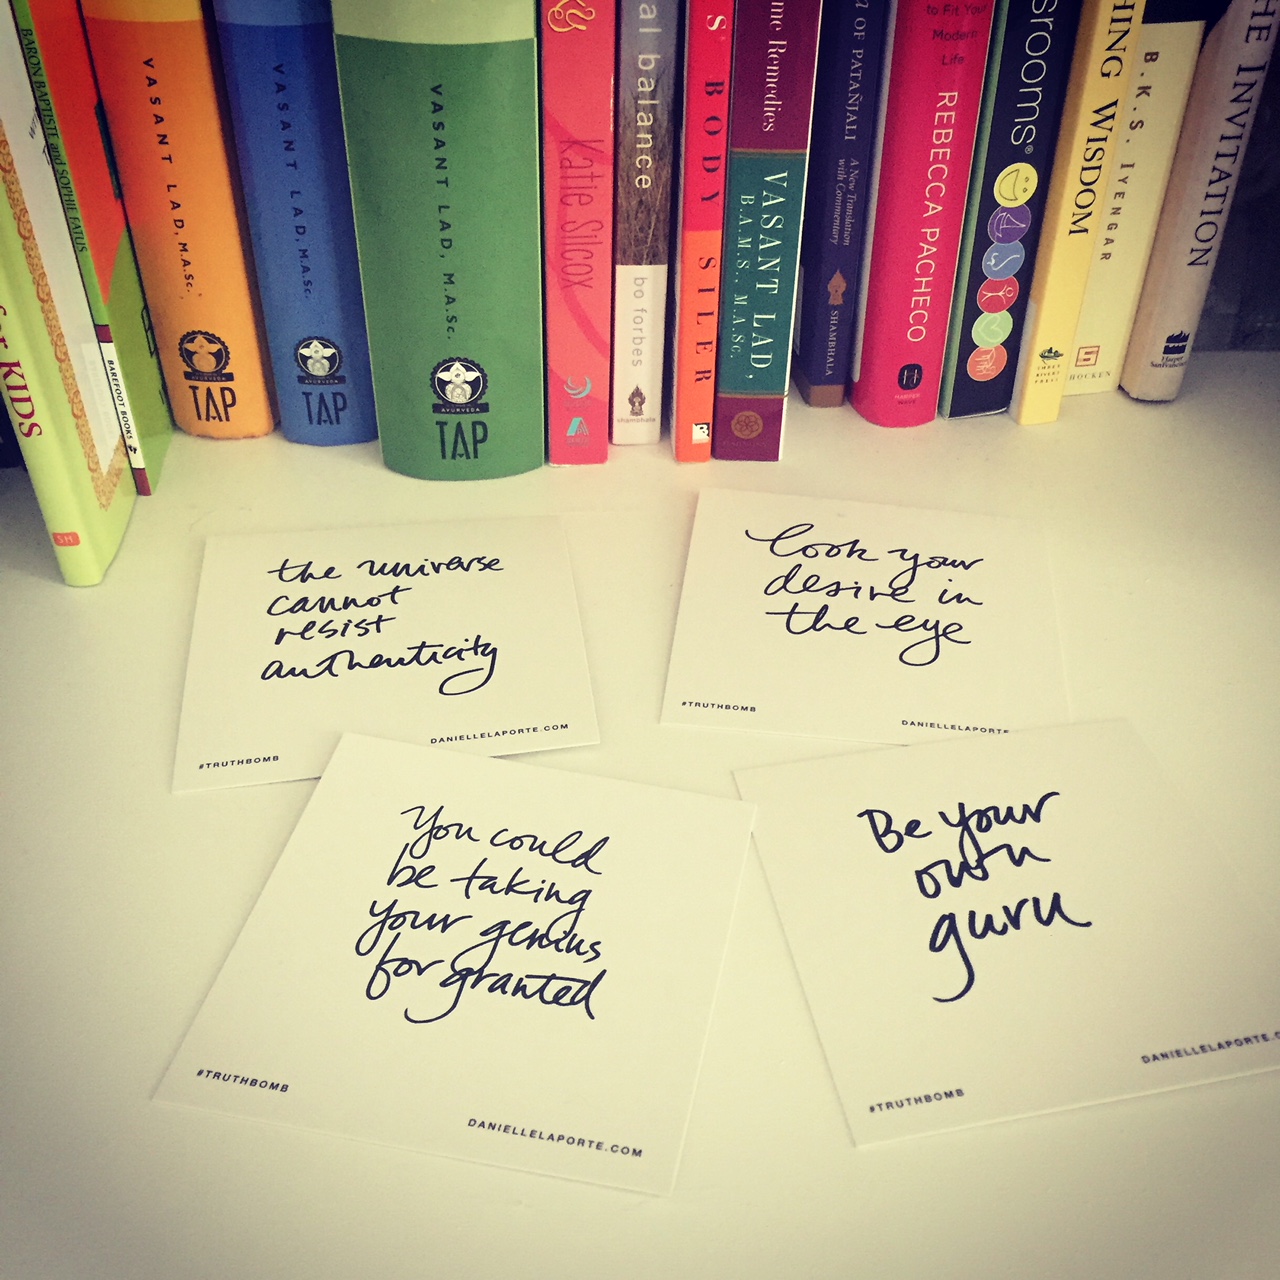 for KIDS
SM
BARON BAPTISTE and SOPHIE FATUS
BAREFOOT BOOKS
VASANT LAD, M.A.Sc.
AYURVEDA
TAP
VASANT LAD, M.A.Sc.
AYURVEDA
TAP
VASANT LAD, M.A.Sc.
AYURVEDA
TAP
Katie Silcox
al balance
bo forbes
shambhala
S' BODY SILER
me Remedies
VASANT LAD,
B.A.M.S., M.A.Sc.
OF PATAÑJALI
A New Translation
with Commentary
SHAMBHALA
to Fit Your
Modern
Life
REBECCA PACHECO
H
srooms®
HING WISDOM
B.K.S. IYENGAR
S
THE INVITATION
Harper
SanFrancisco
the universe
cannot
resist
authenticity
#TRUTHBOMB
DANIELLELAPORTE.COM
look your
desire in
the eye
#TRUTHBOMB
DANIELLELAPORTE
You could
be taking
your genius
for granted
#TRUTHBOMB
DANIELLELAPORTE.COM
Be your
own
guru
#TRUTHBOMB
DANIELLELAPORTE.C